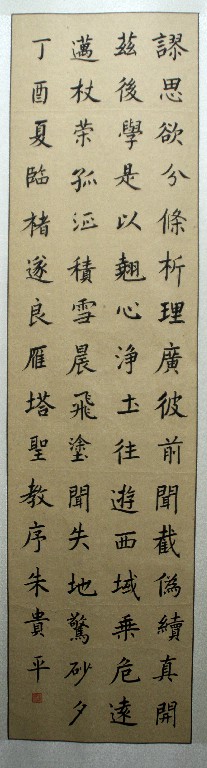 謬思欲分條析理廣彼前聞截偽續真開
茲後學是以翹心淨土往遊西域乘危遠
邁杖策孤征積雪晨飛塗聞失地驚砂夕
丁酉夏臨褚遂良雁塔聖教序朱貴平